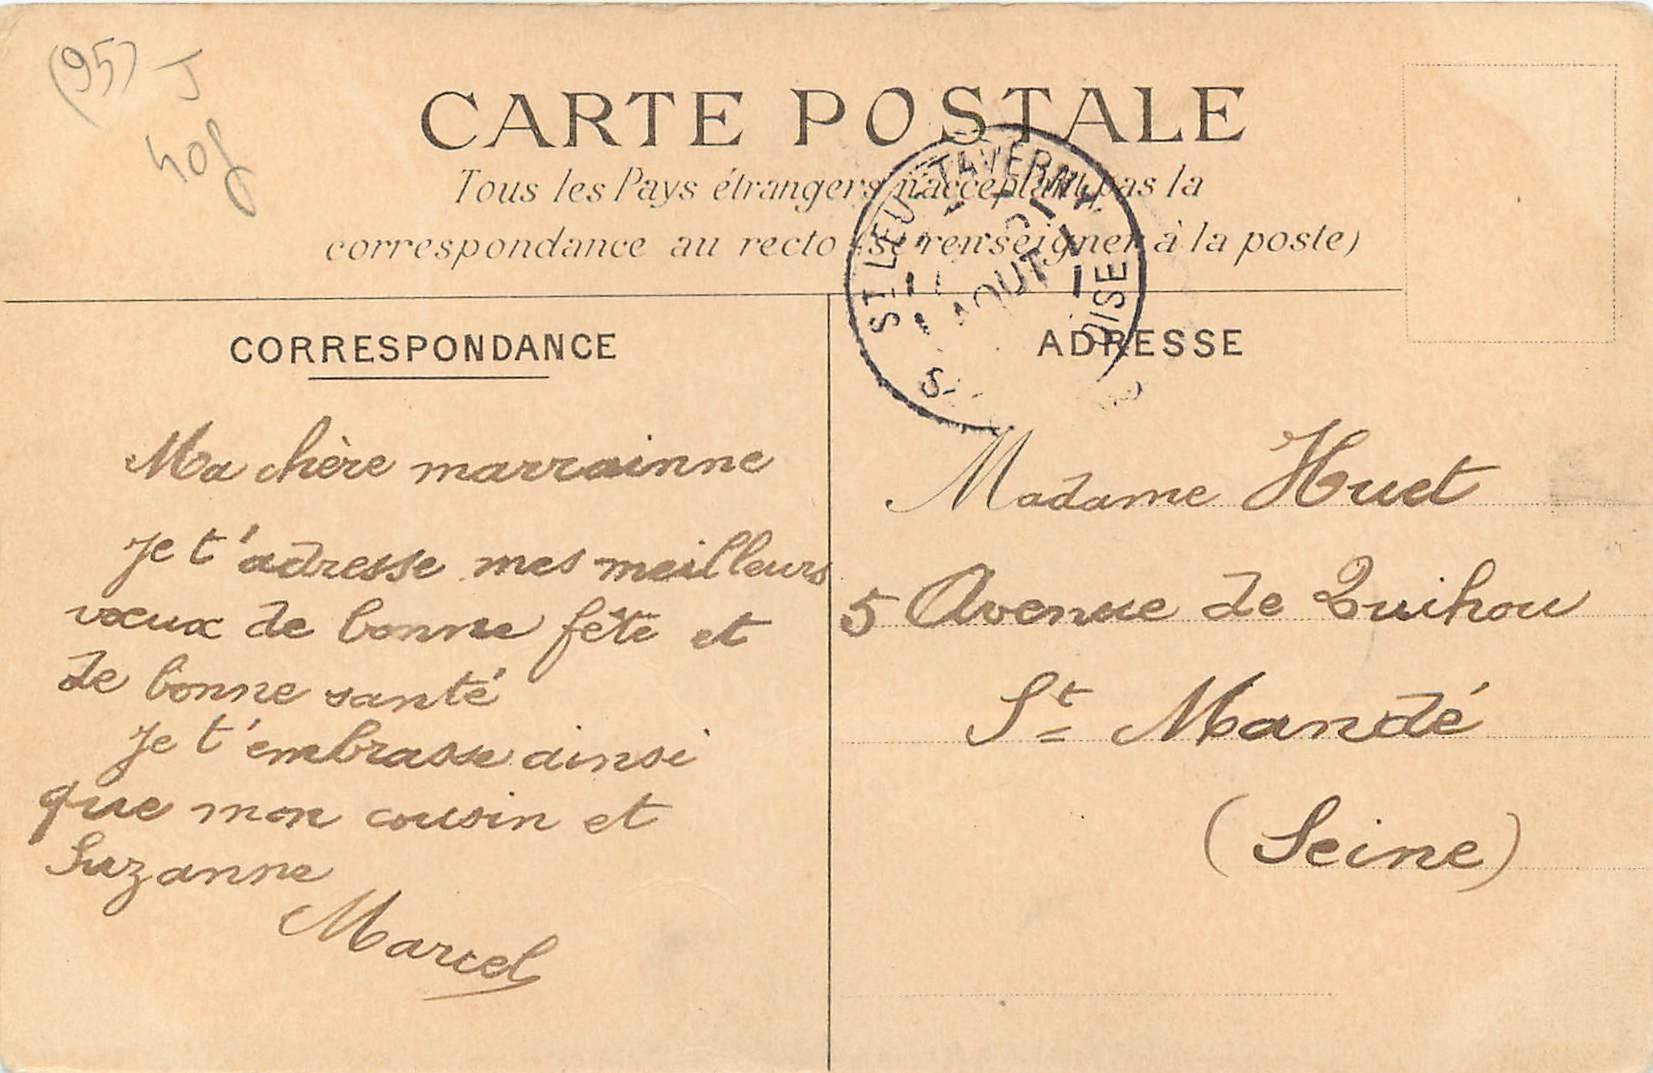 (95) J
40f
CARTE POSTALE
Tous les Pays étrangers n'acceptant pas la
correspondance au recto (se renseigner à la poste)
ST LEU-TAVERNY
AOUT
S. OISE
CORRESPONDANCE
Ma chère marrainne
Je t'adresse mes meilleurs
vœux de bonne fête et
de bonne santé
Je t'embrasse ainsi
que mon cousin et
Suzanne
Marcel
ADRESSE
Madame Huet
5 Avenue de Quihou
St Mandé
(Seine)